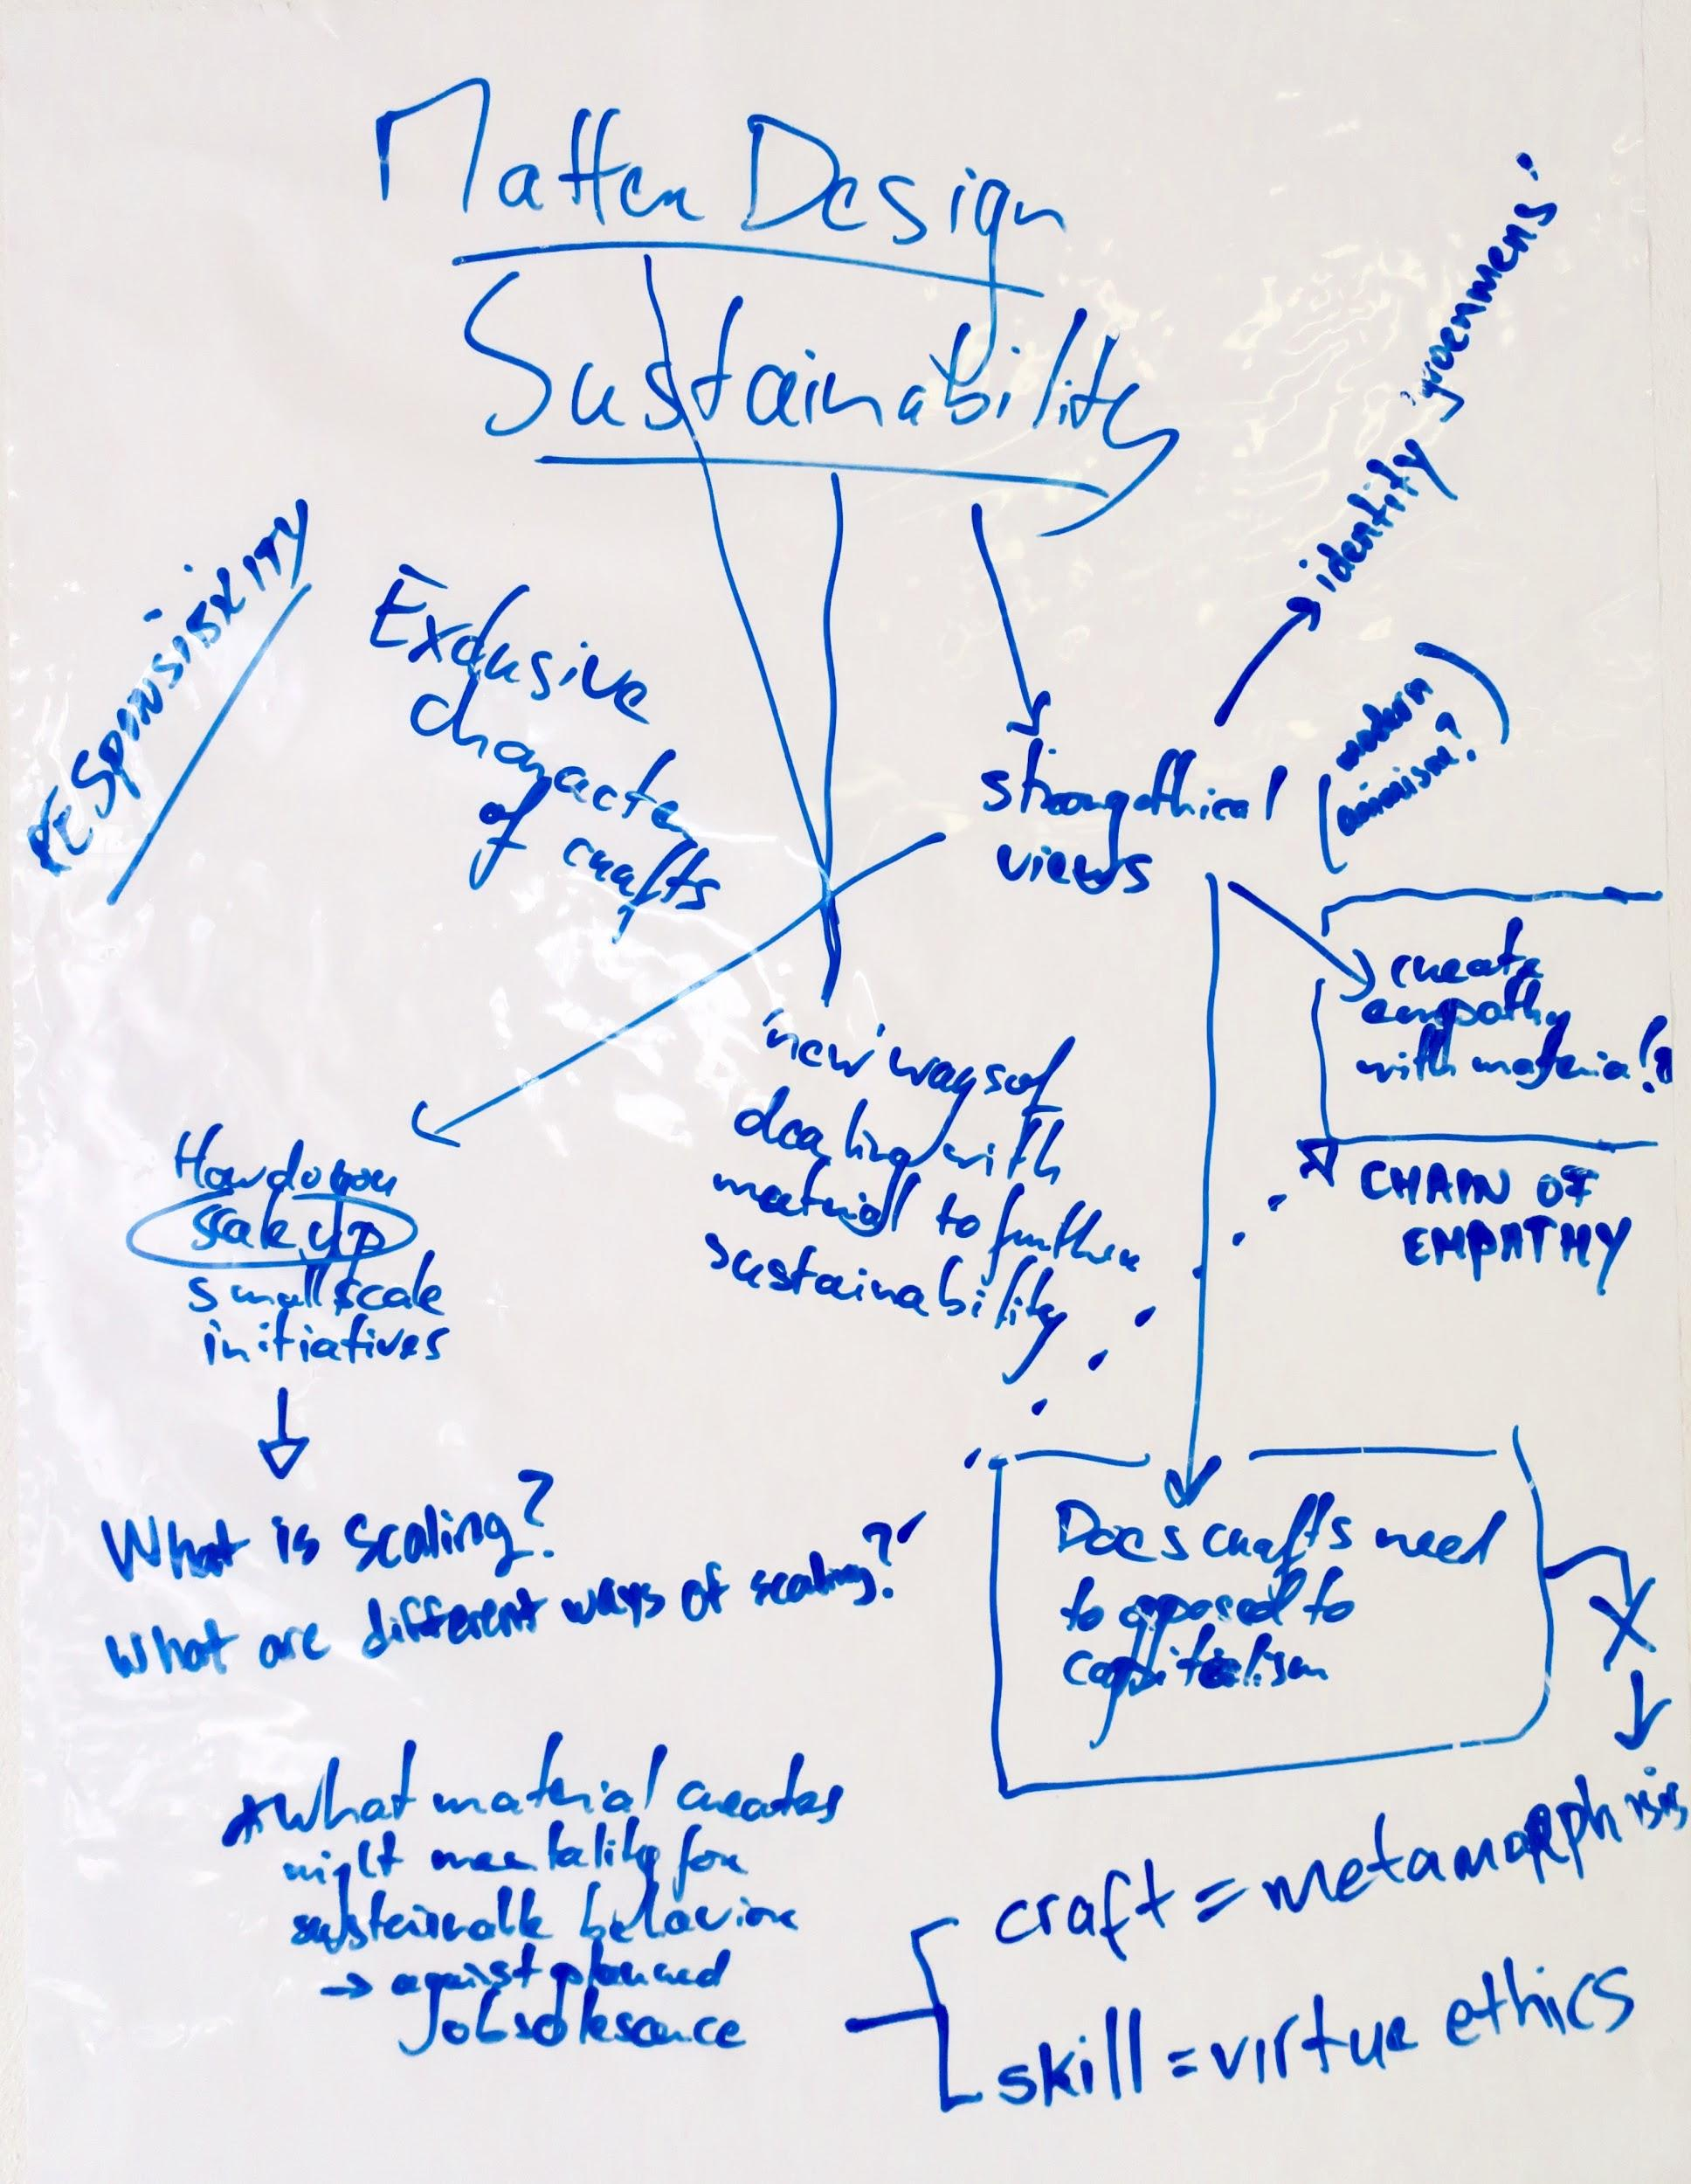 Matter Design
Sustainability
RESPONSIBILITY
Exclusive
character
of crafts
strong ethical
views
identity
(modern
animism?)
create
empathy
with material?
CHAIN OF
EMPATHY
'new' ways of
dealing with
material to further
sustainability
How do you
scale up
small scale
initiatives
What is scaling?
What are different ways of scaling?
Does crafts need
to opposed to
capitalism
*What material creates
right mentality for
sustainable behavior
→ against planned
obsolescence
craft = metamorphisis
skill = virtue ethics